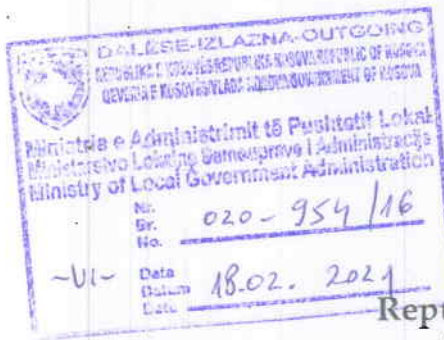 DALESE-IZLAZNA-OUTGOING
REPUBLIKA E KOSOVËS/REPUBLIKA KOSOVA/REPUBLIC OF KOSOVA
QEVERIA E KOSOVËS/VLADA KOSOVA/GOVERNMENT OF KOSOVA
Ministria e Administrimit të Pushtetit Lokal
Ministarstvo Lokalne Samouprave i Administracije
Ministry of Local Government Administration
Nr.
Br. 020-954/16
No.
-VI- Data
Datum 18.02.2021
Date
Rept